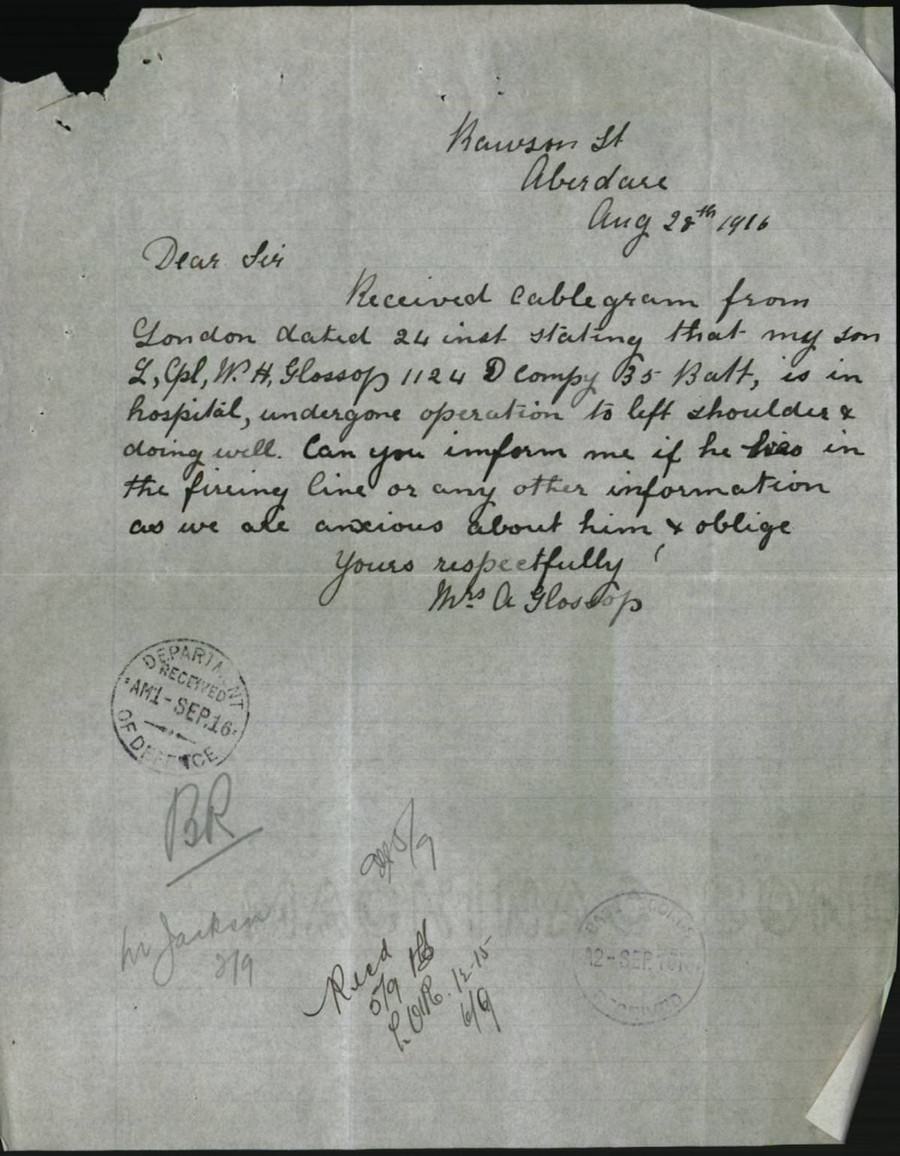 Rawson St
Aberdare
Aug 28th 1916
Dear Sir
Received Cablegram from
London dated 24 inst stating that my son
L, Cpl, W. H, Glossop 1124 D Compy 35 Batt, is in
hospital, undergone operation to left shoulder &
doing well. Can you imform me if he in
the fireing line or any other information
as we are anxious about him, & oblige
Yours respectfully
Mrs A Glossop
DEPARTMENT
RECEIVED
AM 1 - SEP. 16
OF DEFENCE
BR
5/9
Mr Jackson
2/9
Recd
5/9
12-15
6/9
BASE RECORDS
2 - SEP. 1916
RECEIVED